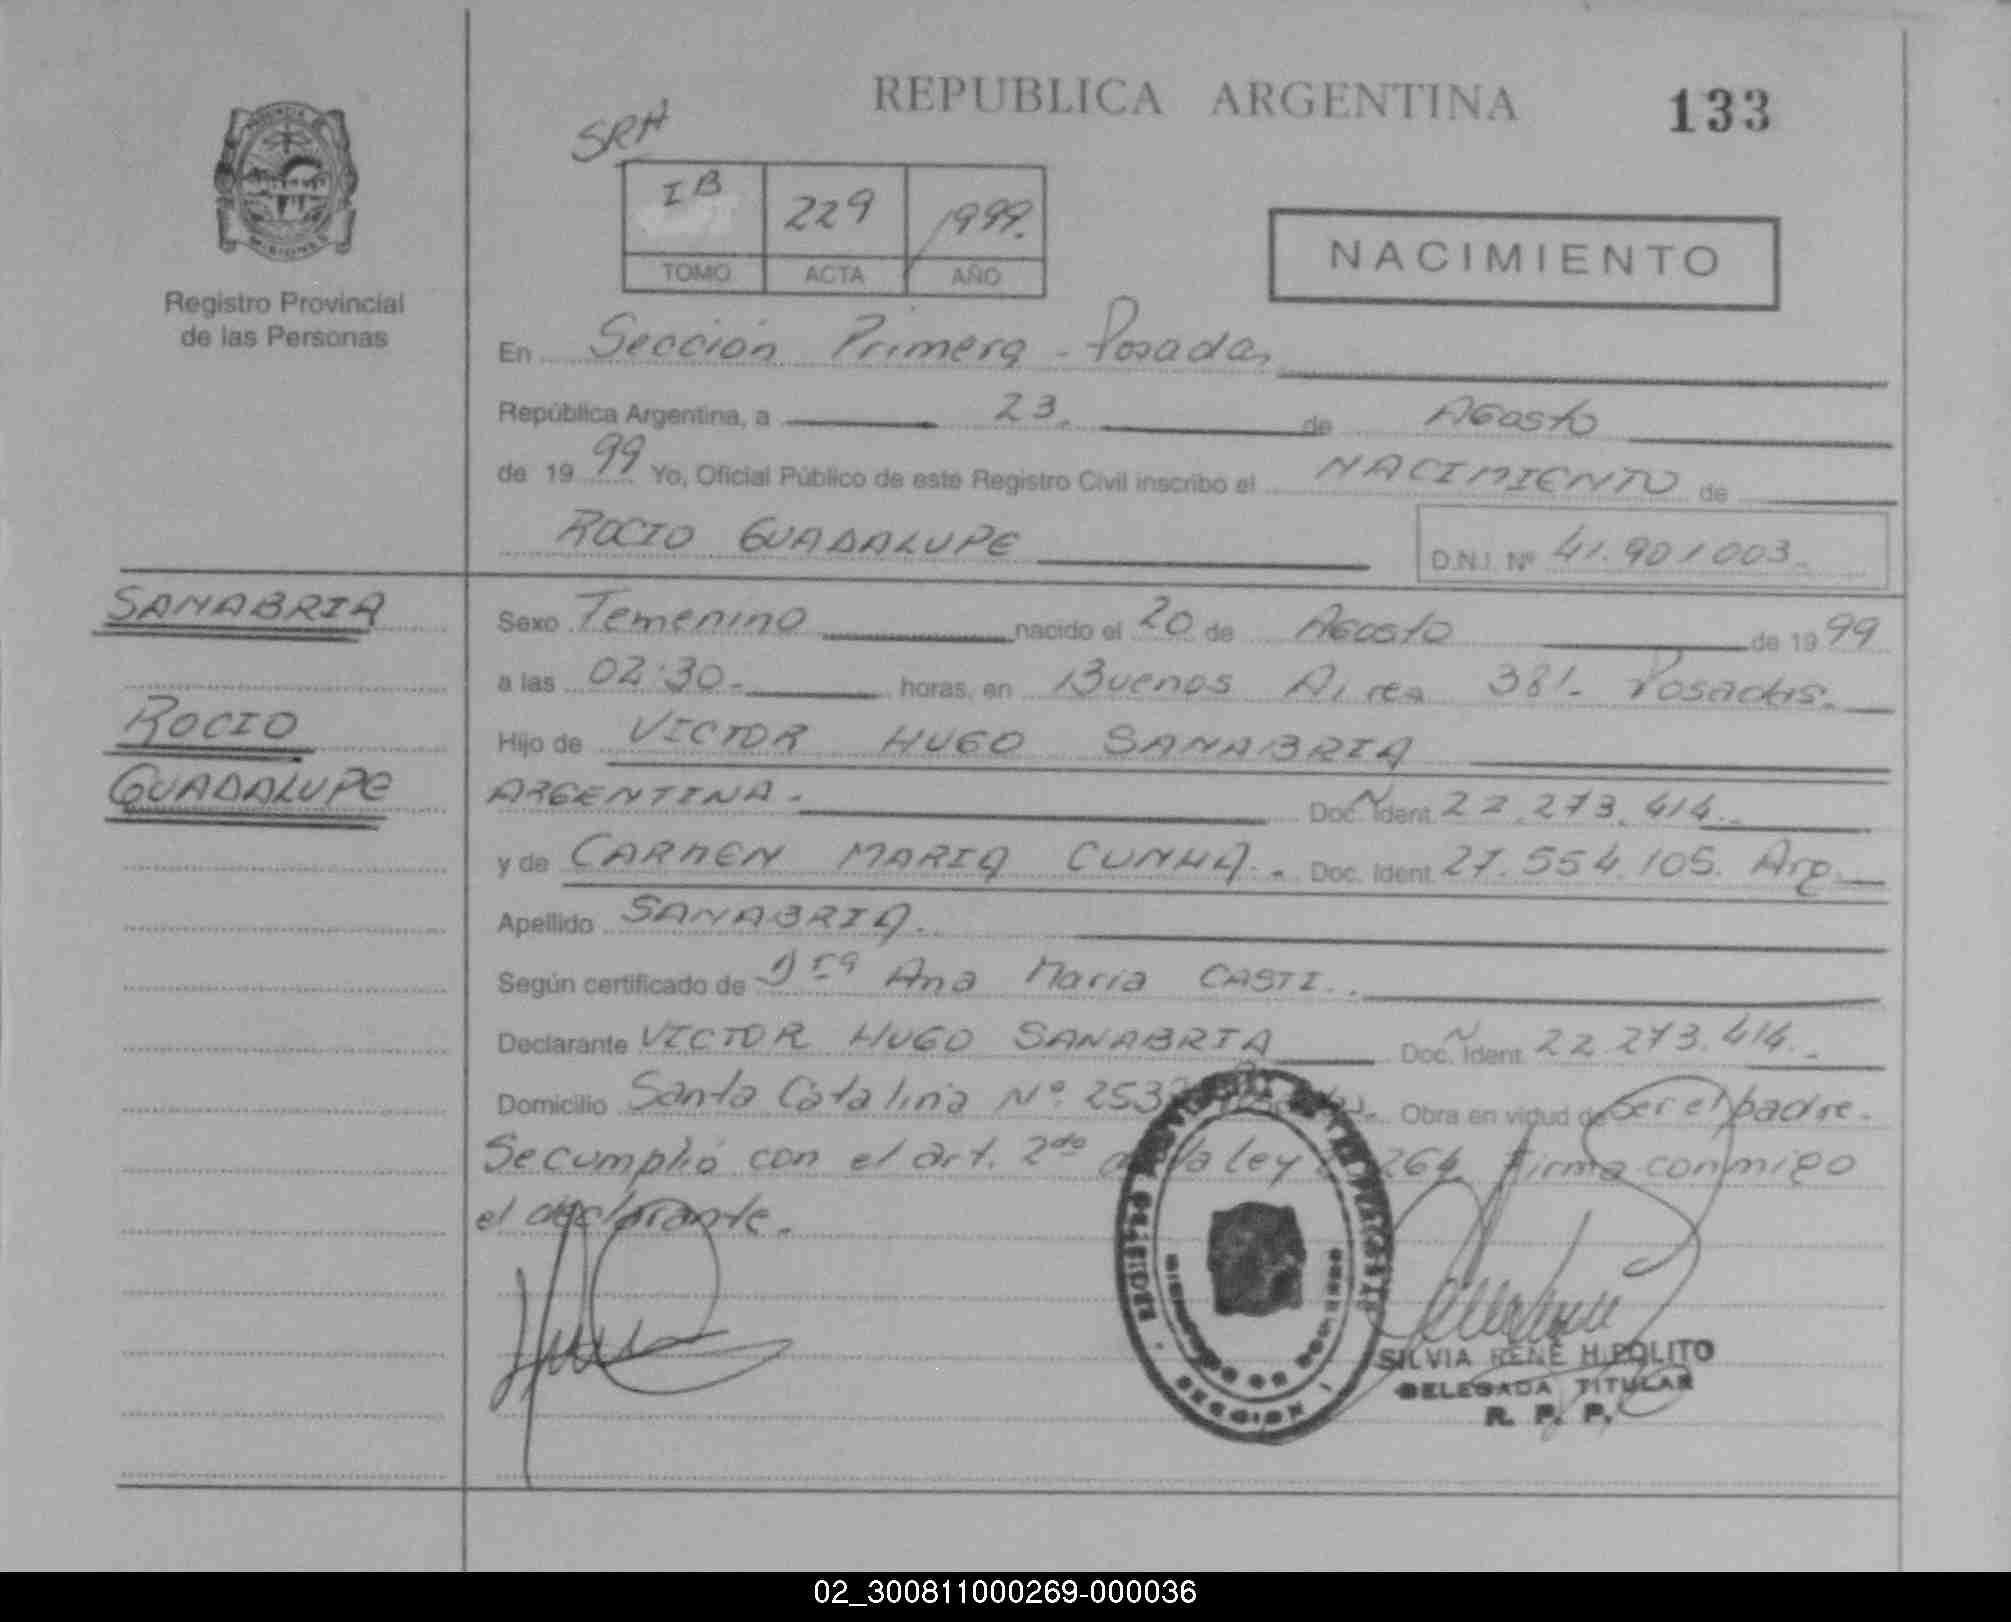 REPUBLICA ARGENTINA 133
SRA
I B 229 1999.
TOMO ACTA AÑO
NACIMIENTO
Registro Provincial
de las Personas
En Sección Primera - Posadas
República Argentina, a 23. de Agosto
de 1999 Yo, Oficial Público de este Registro Civil inscribo el NACIMIENTO de
ROCIO GUADALUPE D.N.I. Nº 41.901003.
SANABRIA
ROCIO
GUADALUPE
Sexo Femenino nacido el 20 de Agosto de 1999
a las 02:30. horas, en Buenos Aires 381. Posadas.
Hijo de VICTOR HUGO SANABRIA
ARGENTINA. Doc. Ident. 22.273.414.
y de CARMEN MARIA CUNHA. Doc. Ident. 27.554.105. Arg.
Apellido SANABRIA.
Según certificado de Dra Ana Maria CASTI.
Declarante VICTOR HUGO SANABRIA Doc. Ident. 22.273.414.
Domicilio Santa Catalina Nº 253 Obra en virtud de Ser el padre.
Se cumplió con el art. 2do de la ley 264 Firma conmigo
el declarante.
SECCION
SILVIA RENE HIPOLITO
DELEGADA TITULAR
R. P. P.
02_300811000269-000036